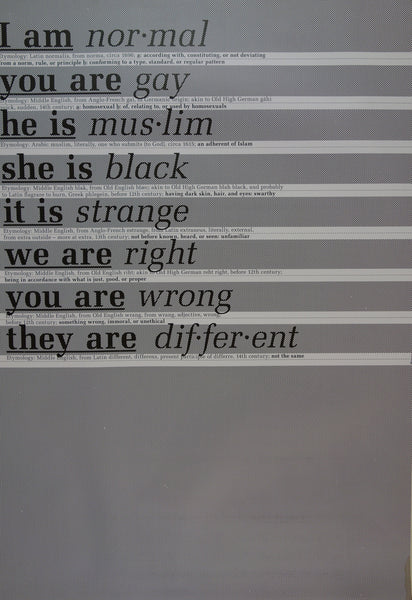 I am nor·mal
Etymology: Latin normalis, from norma, circa 1696; a: according with, constituting, or not deviating
from a norm, rule, or principle b: conforming to a type, standard, or regular pattern
you are gay
Etymology: Middle English, from Anglo-French gai, of Germanic origin; akin to Old High German gāhi
quick, sudden, 14th century; a: homosexual b: of, relating to, or used by homosexuals
he is mus·lim
Etymology: Arabic muslim, literally, one who submits (to God), circa 1615; an adherent of Islam
she is black
Etymology: Middle English blak, from Old English blæc; akin to Old High German blah black, and probably
to Latin flagrare to burn, Greek phlegein, before 12th century; having dark skin, hair, and eyes: swarthy
it is strange
Etymology: Middle English, from Anglo-French estrange, from Latin extraneus, literally, external,
from extra outside – more at extra, 13th century; not before known, heard, or seen: unfamiliar
we are right
Etymology: Middle English, from Old English riht; akin to Old High German reht right, before 12th century;
being in accordance with what is just, good, or proper
you are wrong
Etymology: Middle English, from Old English wrang, from wrang, adjective, wrong,
before 12th century; something wrong, immoral, or unethical
they are dif·fer·ent
Etymology: Middle English, from Latin different, differens, present participle of differre, 14th century; not the same